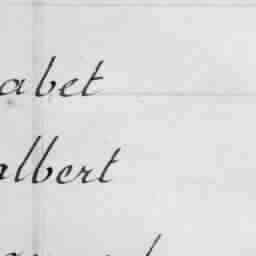 abet
lbert